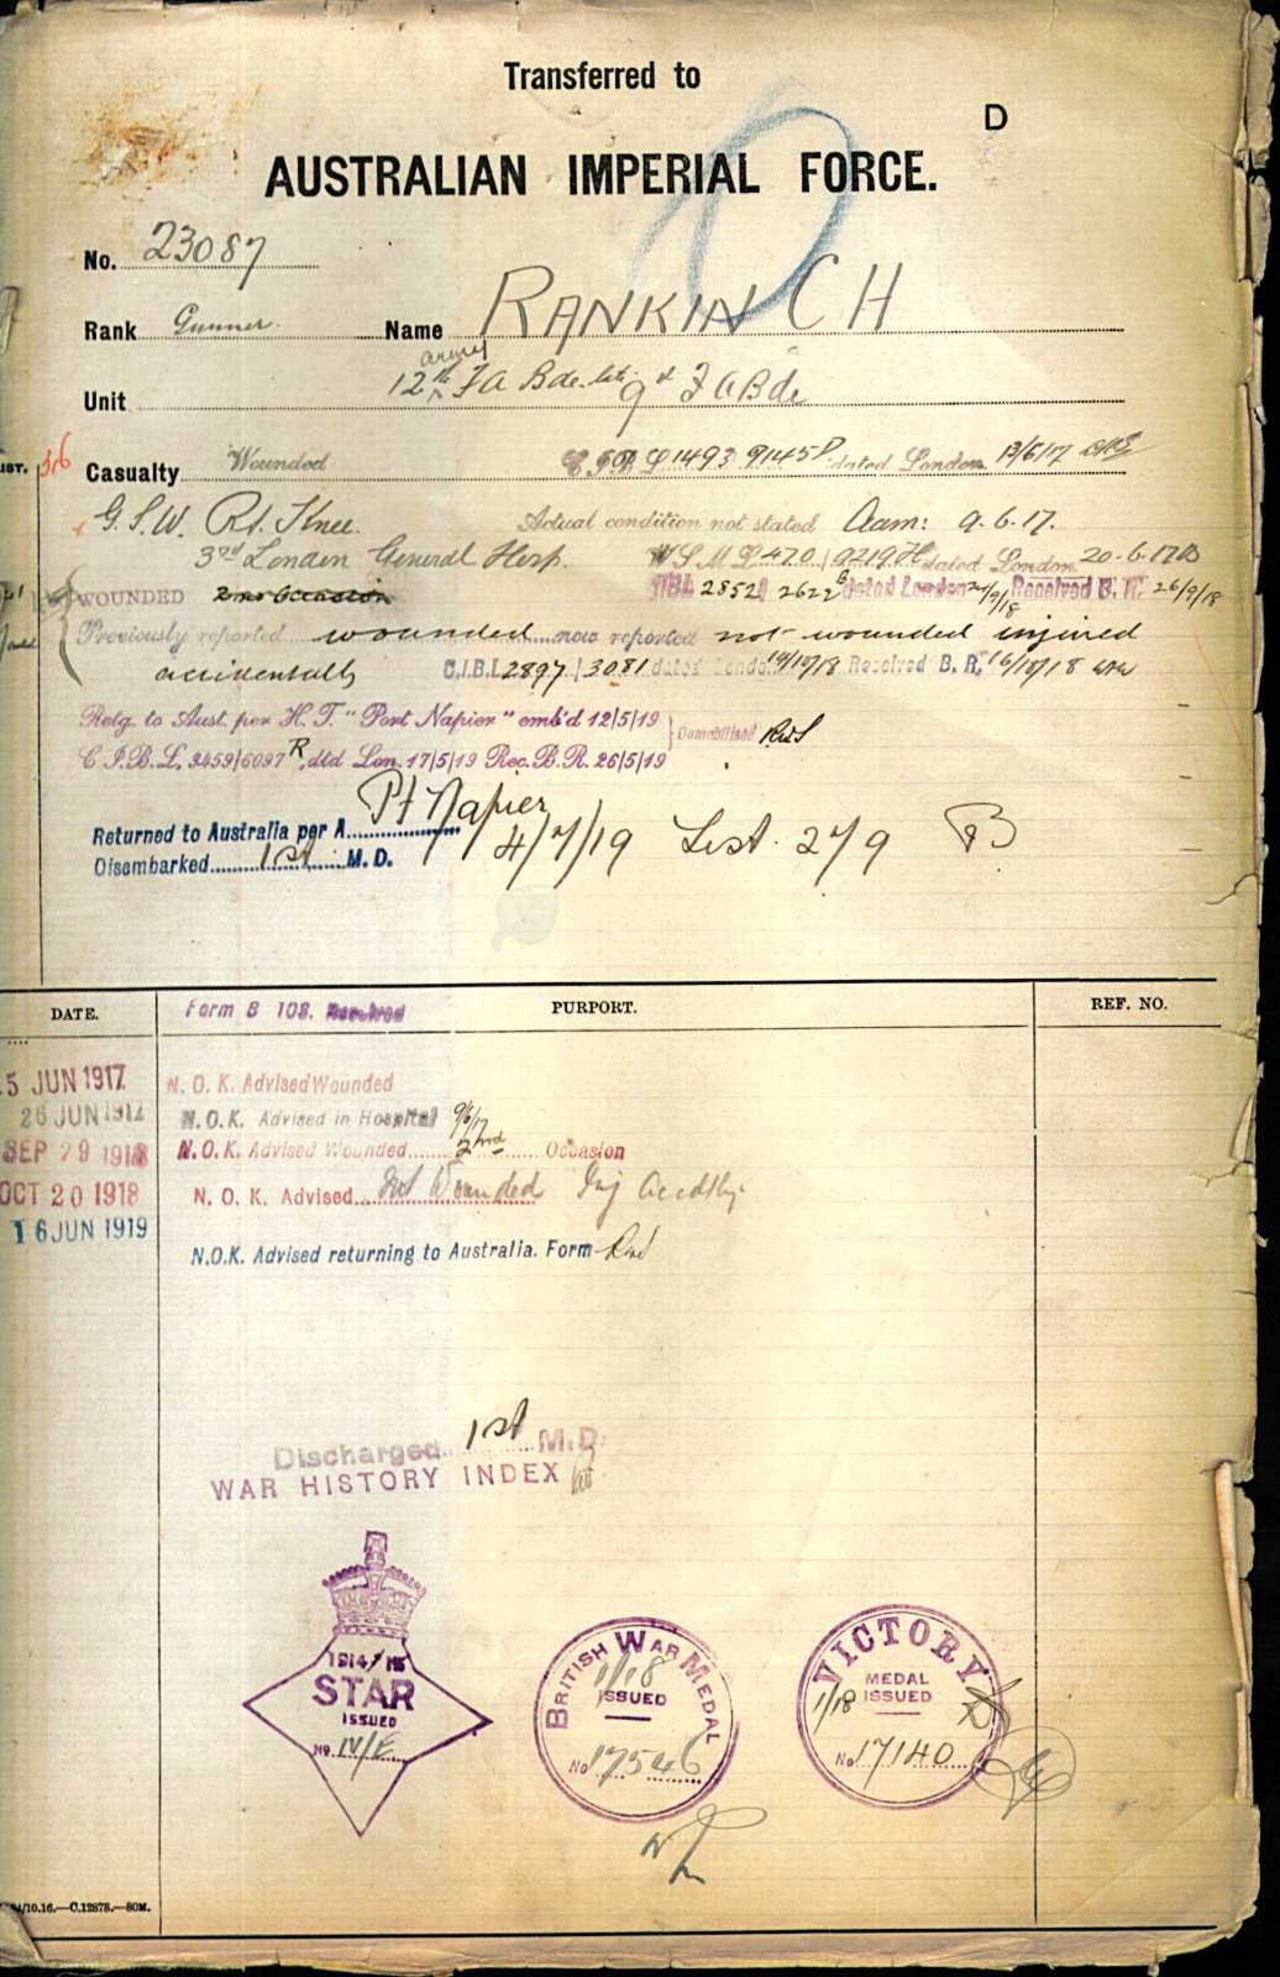 Transferred to
D
AUSTRALIAN IMPERIAL FORCE.
No. 23087
Rank Gunner Name RANKIN C H
army
Unit 12th FA Bde. late 9th FA Bde
36 Casualty Wounded 1493 9145 dated London 13/6/17
G.S.W. Rt. Knee. Actual condition not stated Adm: 9.6.17.
3rd London General Hosp. 470 9219 H dated London 20.6.17
WOUNDED 2nd Occasion 2852 2622 dated London 24/9/18 Received B. R. 26/9/18
Previously reported wounded now reported not wounded injured
accidentally C.I.B.L 2897 / 3081 dated London 14/10/18 Received B. R. 16/10/18
Retg. to Aust. per H. T. "Port Napier" emb'd 12/5/19 Demobilised
C I.B.L. 3459/6097 R, dtd Lon. 17/5/19 Rec. B. R. 26/5/19
Returned to Australia per A Pt Napier
Disembarked 1st M. D. 4/7/19 List. 27/9 B
DATE. Form B 103. Received PURPORT. REF. NO.
5 JUN 1917 N. O. K. Advised Wounded
26 JUN 1917 N.O.K. Advised in Hospital 9/6/17
SEP 29 1918 N. O. K. Advised Wounded 2nd Occasion
OCT 20 1918 N. O. K. Advised Not Wounded Inj Accdtly
16 JUN 1919 N.O.K. Advised returning to Australia. Form
Discharged 1st M.D.
WAR HISTORY INDEX
1914/15
STAR
ISSUED
No IV/E
BRITISH WAR MEDAL
1/18
ISSUED
No 17546
VICTORY
MEDAL
1/18 ISSUED
No 17140
/10.16.—C.12878.—80M.